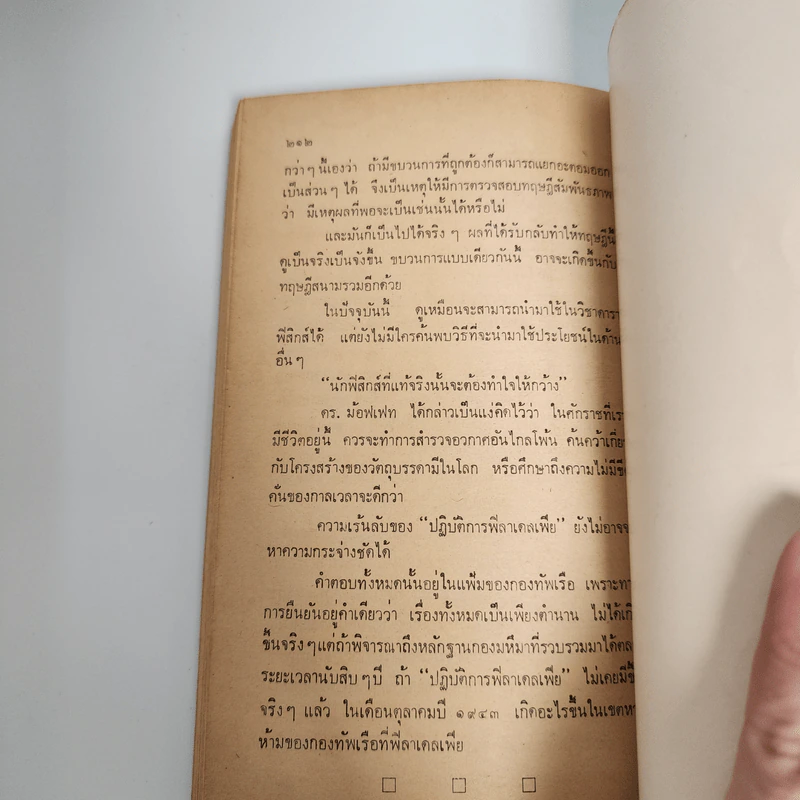 ๒๑๒
กว่า ๆ นี้เองว่า ถ้ามีขบวนการที่ถูกต้องก็สามารถแยกอะตอมออก
เป็นส่วน ๆ ได้ จึงเป็นเหตุให้มีการตรวจสอบทฤษฎีสัมพันธภาพ
ว่า มีเหตุผลที่พอจะเป็นเช่นนั้นได้หรือไม่
และมันก็เป็นไปได้จริง ๆ ผลที่ได้รับกลับทำให้ทฤษฎีนี้
ดูเป็นจริงเป็นจังขึ้น ขบวนการแบบเดียวกันนี้ อาจจะเกิดขึ้นกับ
ทฤษฎีสนามรวมอีกด้วย
ในปัจจุบันนี้ ดูเหมือนจะสามารถนำมาใช้ในวิชาดารา
ฟิสิกส์ได้ แต่ยังไม่มีใครค้นพบวิธีที่จะนำมาใช้ประโยชน์ในด้าน
อื่น ๆ
“นักฟิสิกส์ที่แท้จริงนั้นจะต้องทำใจให้กว้าง”
ดร. ม้อฟเฟท ได้กล่าวเป็นแง่คิดไว้ว่า ในศักราชที่เรา
มีชีวิตอยู่นี้ ควรจะทำการสำรวจอวกาศอันไกลโพ้น ค้นคว้าเกี่ยว
กับโครงสร้างของวัตถุบรรดามีในโลก หรือศึกษาถึงความไม่มี
คั่นของกาลเวลาจะดีกว่า
ความเร้นลับของ “ปฏิบัติการฟิลาเดลเฟีย” ยังไม่อาจ
หาความกระจ่างชัดได้
คำตอบทั้งหมดนั้นอยู่ในแฟ้มของกองทัพเรือ เพราะ
การยืนยันอยู่คำเดียวว่า เรื่องทั้งหมดเป็นเพียงตำนาน ไม่ได้
ขึ้นจริง ๆ แต่ถ้าพิจารณาถึงหลักฐานกองมหึมาที่รวบรวมมาได้
ระยะเวลานับสิบ ๆ ปี ถ้า “ปฏิบัติการฟิลาเดลเฟีย” ไม่เคยมี
จริง ๆ แล้ว ในเดือนตุลาคมปี ๑๙๔๓ เกิดอะไรขึ้นในเขต
ห้ามของกองทัพเรือที่ฟิลาเดลเฟีย